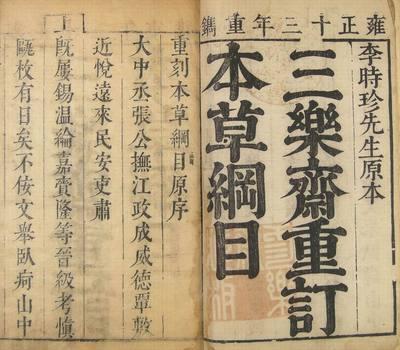 雍正十三年重鐫
李時珍先生原本
三樂齋重訂
本草綱目
重刻本草綱目原序
大中丞張公撫江政成威德覃敷
近悅遠來民安吏肅
上既屢錫温綸嘉賚隆等晉級考慎
甌枚有日矣不佞文舉臥痾山中